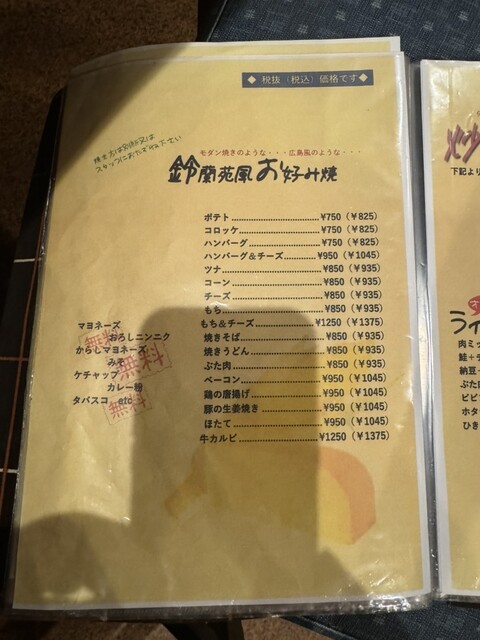 ◆ 税抜（税込）価格です◆
焼き方は別紙又は
スタッフにおたずね下さい
モダン焼きのような・・・広島風のような・・・
鈴蘭苑風お好み焼
ポテト…………………………¥750（￥825）
コロッケ………………………¥750（￥825）
ハンバーグ……………………¥750（￥825）
ハンバーグ＆チーズ…………¥950（￥1045）
ツナ……………………………¥850（￥935）
コーン…………………………¥850（￥935）
チーズ…………………………¥850（￥935）
もち……………………………¥850（￥935）
もち＆チーズ…………………¥1250（￥1375）
焼きそば………………………¥850（￥935）
焼きうどん……………………¥850（￥935）
ぶた肉…………………………¥850（￥935）
ベーコン………………………¥950（￥1045）
鶏の唐揚げ……………………¥950（￥1045）
豚の生姜焼き…………………¥950（￥1045）
ほたて…………………………¥950（￥1045）
牛カルビ………………………¥1250（￥1375）
マヨネーズ
おろしニンニク
からしマヨネーズ
みそ
ケチャップ
カレー粉
タバスコ etc
無料
無料
無料
下記より
ライ
肉ミッ
鮭＋チ
納豆＋
ぶた肉
ビビン
ホタ
ひき